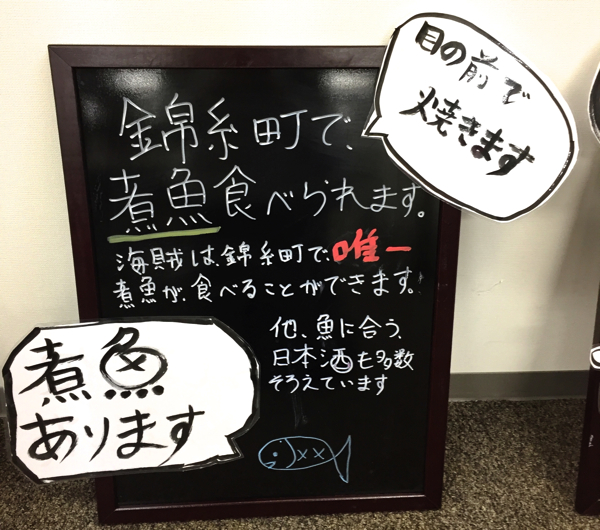 目の前で
焼きます
錦糸町で、
煮魚食べられます。
海賊は、錦糸町で、唯一
煮魚が、食べることができます。
他、魚に合う、
日本酒も多数
そろえています
煮魚
あります